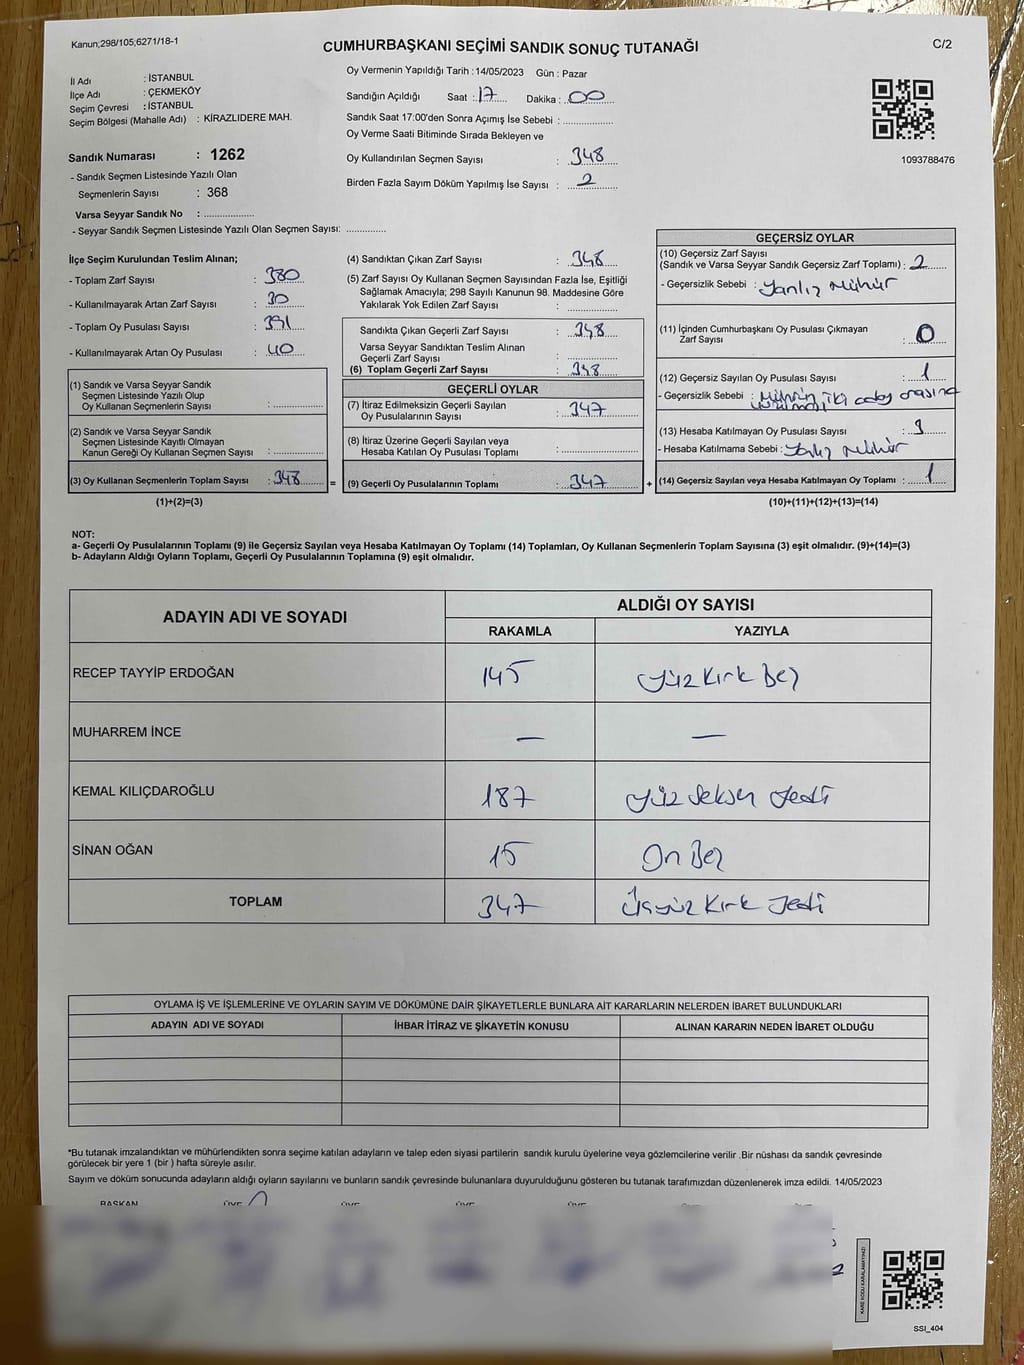 Kanun;298/105;6271/18-1
CUMHURBAŞKANI SEÇİMİ SANDIK SONUÇ TUTANAĞI
C/2
İl Adı : İSTANBUL
İlçe Adı : ÇEKMEKÖY
Seçim Çevresi : İSTANBUL
Seçim Bölgesi (Mahalle Adı) : KİRAZLIDERE MAH.
Sandık Numarası : 1262
- Sandık Seçmen Listesinde Yazılı Olan
Seçmenlerin Sayısı : 368
Varsa Seyyar Sandık No : ....................
- Seyyar Sandık Seçmen Listesinde Yazılı Olan Seçmen Sayısı: ..............
Oy Vermenin Yapıldığı Tarih : 14/05/2023 Gün : Pazar
Sandığın Açıldığı Saat : 17 Dakika : 00
Sandık Saat 17:00'den Sonra Açımış İse Sebebi : ..................
Oy Verme Saati Bitiminde Sırada Bekleyen ve
Oy Kullandırılan Seçmen Sayısı : 348
Birden Fazla Sayım Döküm Yapılmış İse Sayısı : 2
1093788476
İlçe Seçim Kurulundan Teslim Alınan;
- Toplam Zarf Sayısı : 380
- Kullanılmayarak Artan Zarf Sayısı : 30
- Toplam Oy Pusulası Sayısı : 391
- Kullanılmayarak Artan Oy Pusulası : 40
(1) Sandık ve Varsa Seyyar Sandık
Seçmen Listesinde Yazılı Olup
Oy Kullanan Seçmenlerin Sayısı : ..................
(2) Sandık ve Varsa Seyyar Sandık
Seçmen Listesinde Kayıtlı Olmayan
Kanun Gereği Oy Kullanan Seçmen Sayısı : ..................
(3) Oy Kullanan Seçmenlerin Toplam Sayısı : 348 =
(1)+(2)=(3)
(4) Sandıktan Çıkan Zarf Sayısı : 348
(5) Zarf Sayısı Oy Kullanan Seçmen Sayısından Fazla İse, Eşitliği
Sağlamak Amacıyla; 298 Sayılı Kanunun 98. Maddesine Göre
Yakılarak Yok Edilen Zarf Sayısı : ..................
Sandıkta Çıkan Geçerli Zarf Sayısı : 348
Varsa Seyyar Sandıktan Teslim Alınan
Geçerli Zarf Sayısı : ..................
(6) Toplam Geçerli Zarf Sayısı : 348
GEÇERLİ OYLAR
(7) İtiraz Edilmeksizin Geçerli Sayılan
Oy Pusulalarının Sayısı : 347
(8) İtiraz Üzerine Geçerli Sayılan veya
Hesaba Katılan Oy Pusulası Toplamı : ..................
(9) Geçerli Oy Pusulalarının Toplamı : 347 +
GEÇERSİZ OYLAR
(10) Geçersiz Zarf Sayısı
(Sandık ve Varsa Seyyar Sandık Geçersiz Zarf Toplamı) : 2
- Geçersizlik Sebebi : Yanlız Mühür
(11) İçinden Cumhurbaşkanı Oy Pusulası Çıkmayan
Zarf Sayısı : 0
(12) Geçersiz Sayılan Oy Pusulası Sayısı : 1
- Geçersizlik Sebebi : Mührün iki aday arasına
(13) Hesaba Katılmayan Oy Pusulası Sayısı :
- Hesaba Katılmama Sebebi : Yanlız Mühür
(14) Geçersiz Sayılan veya Hesaba Katılmayan Oy Toplamı : 1
(10)+(11)+(12)+(13)=(14)
NOT:
a- Geçerli Oy Pusulalarının Toplamı (9) ile Geçersiz Sayılan veya Hesaba Katılmayan Oy Toplamı (14) Toplamları, Oy Kullanan Seçmenlerin Toplam Sayısına (3) eşit olmalıdır. (9)+(14)=(3)
b- Adayların Aldığı Oyların Toplamı, Geçerli Oy Pusulalarının Toplamına (9) eşit olmalıdır.
ADAYIN ADI VE SOYADI
ALDIĞI OY SAYISI
RAKAMLA YAZIYLA
RECEP TAYYİP ERDOĞAN 145 Yüz Kırk Beş
MUHARREM İNCE — —
KEMAL KILIÇDAROĞLU 187 Yüz Seksen Yedi
SİNAN OĞAN 15 On Beş
TOPLAM 347 Üçyüz Kırk Yedi
OYLAMA İŞ VE İŞLEMLERİNE VE OYLARIN SAYIM VE DÖKÜMÜNE DAİR ŞİKAYETLERLE BUNLARA AİT KARARLARIN NELERDEN İBARET BULUNDUKLARI
ADAYIN ADI VE SOYADI İHBAR İTİRAZ VE ŞİKAYETİN KONUSU ALINAN KARARIN NEDEN İBARET OLDUĞU
*Bu tutanak imzalandıktan ve mühürlendikten sonra seçime katılan adayların ve talep eden siyasi partilerin sandık kurulu üyelerine veya gözlemcilerine verilir .Bir nüshası da sandık çevresinde
görülecek bir yere 1 (bir ) hafta süreyle asılır.
Sayım ve döküm sonucunda adayların aldığı oyların sayılarını ve bunların sandık çevresinde bulunanlara duyurulduğunu gösteren bu tutanak tarafımızdan düzenlenerek imza edildi. 14/05/2023
BAŞKAN ÜYE ÜYE ÜYE ÜYE
KARE KODU KARALAMAYINIZ!
SSİ_404